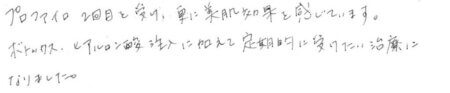 プロファイロ2回目を受け、更に美肌効果を感じています。
ボトックス、ヒアルロン酸注入に加えて定期的に受けたい治療に
なりました。